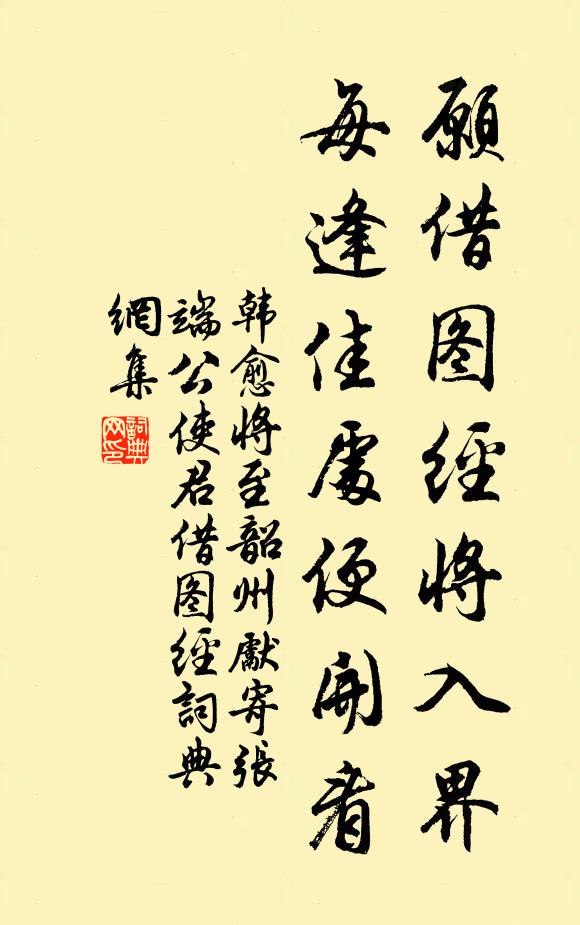 願借图經將入界
每逢佳處便開看
韩愈將至韶州獻寄張
端公使君借图經詞典
網集
詞典
網印